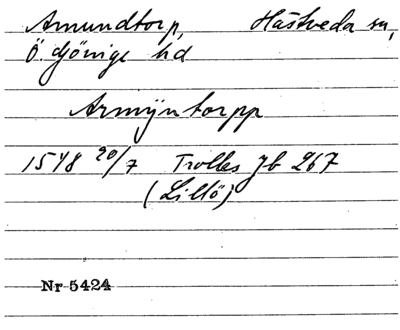 Amundtorp, Hästveda sn,
Ö. Göinge hd
Armÿntorpp
1548 20/7 Trolles Jb 267
(Lillö)
Nr 5424